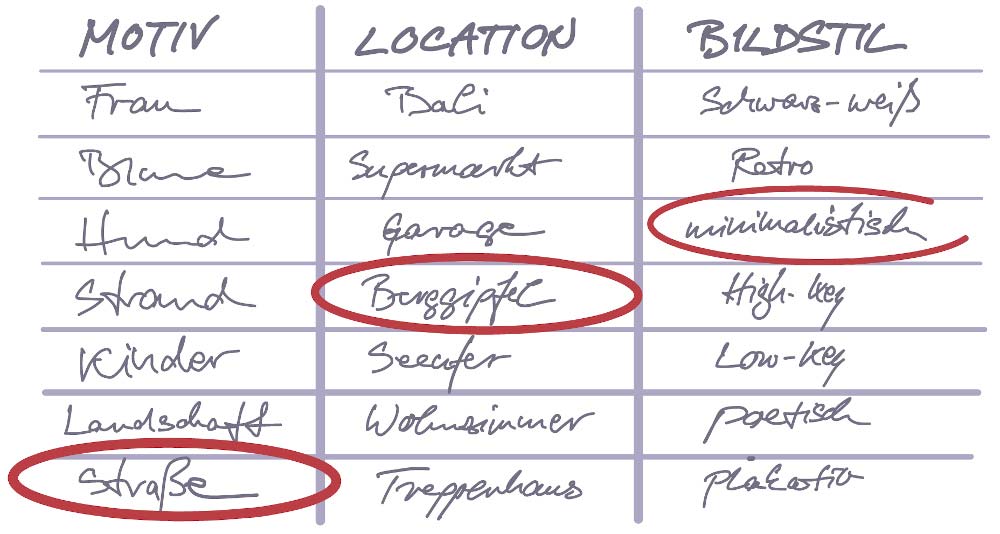 MOTIV LOCATION BILDSTIL
Frau Bali Schwarz-weiß
Blume Supermarkt Retro
Hund Garage minimalistisch
Strand Berggipfel High-key
Kinder Seeufer Low-key
Landschaft Wohnzimmer poetisch
Straße Treppenhaus plakativ